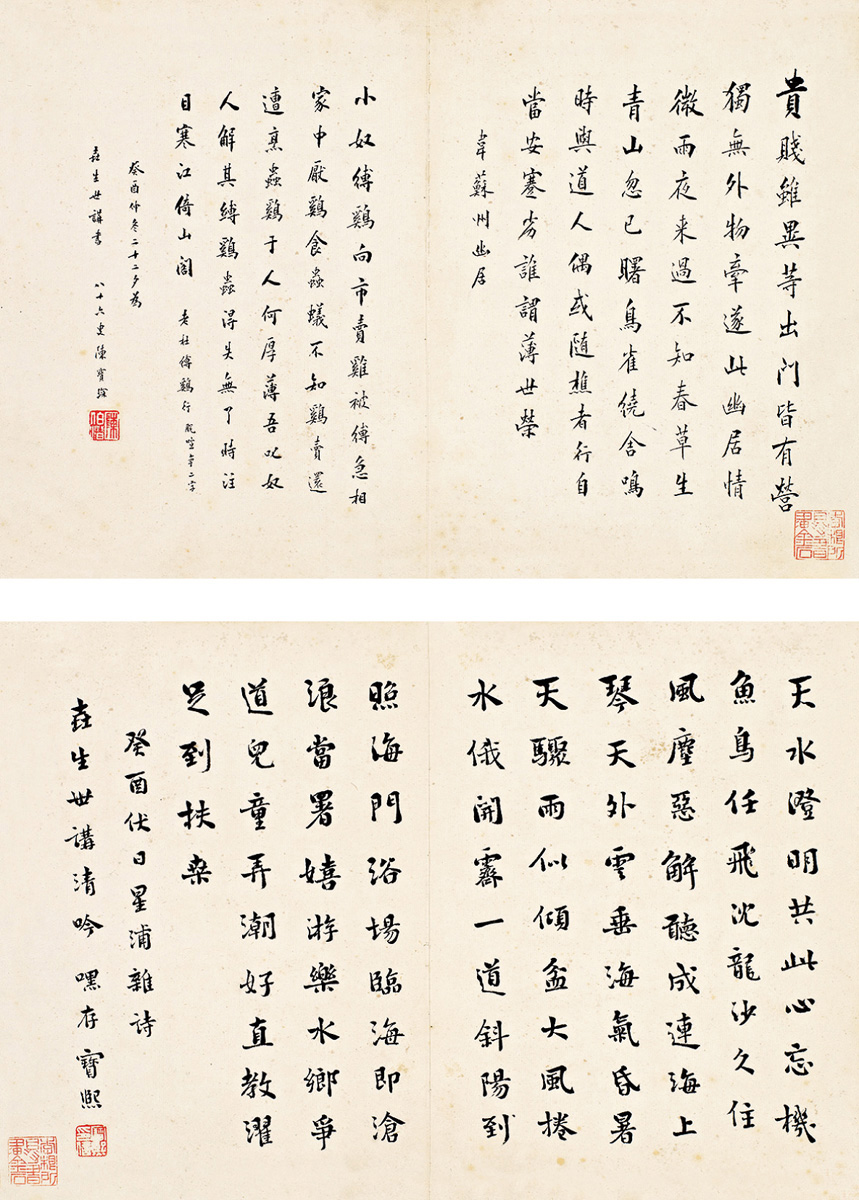 貴賤雖異等出門皆有營
獨無外物牽遂此幽居情
微雨夜來過不知春草生
青山忽已曙鳥雀繞舍鳴
時與道人偶或隨樵者行自
當安蹇劣誰謂薄世榮
韋蘇州幽居
小奴縛鷄向市賣雞被縛急相
家中厭鷄食蟲蟻不知鷄賣還
遭烹蟲鷄于人何厚薄吾叱奴
人解其縛鷄蟲得失無了時注
目寒江倚山閣 老杜縛鷄行 脫喧爭二字
癸酉仲冬二十二夕為
垚生世講書 八十六叟陳寶琛
天水澄明共此心忘機
魚鳥任飛沈龍沙久住
風塵惡解聽成連海上
琴天外雲垂海氣昏暑
天驟雨似傾盆大風捲
水俄開霽一道斜陽到
照海門浴場臨海即滄
浪當署嬉游樂水鄉爭
道兒童弄潮好直教濯
足到扶桑
癸酉伏日星浦雜詩
垚生世講清吟 嘿存寶熙